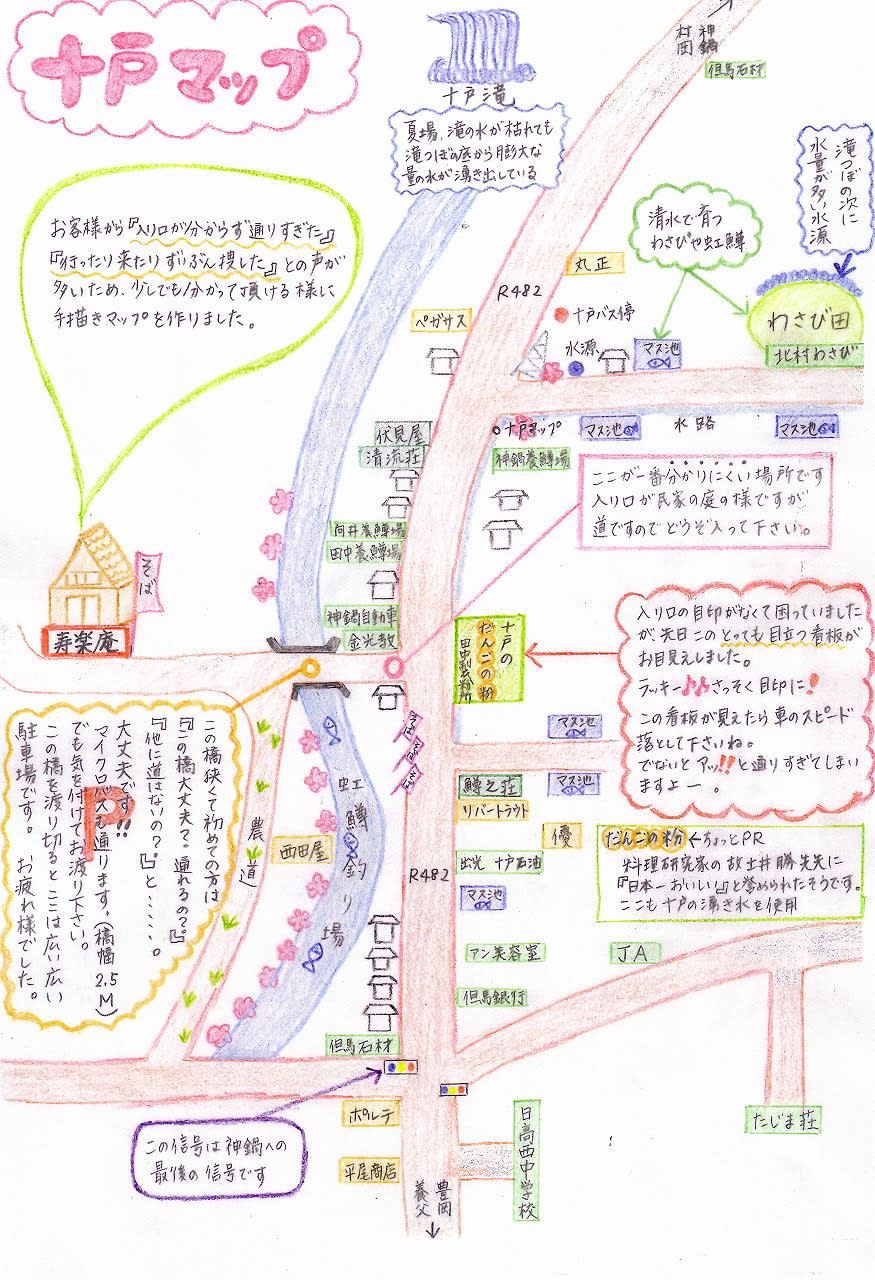 十戸マップ
十戸滝
夏場、滝の水が枯れても
滝つぼの底から膨大な
量の水が湧き出している
神鍋
村岡
但馬石材
滝つぼの次に
水量が多い水源
清水で育つ
わさびや虹鱒
お客様から『入り口が分からず通りすぎた』
『行ったり来たりずいぶん捜した』との声が
多いため、少しでも分かって頂ける様に
手描きマップを作りました。
丸正
R482
十戸バス停
ペガサス
水源
マス池
わさび田
北村わさび
十戸マップ
マス池
水路
マス池
伏見屋
清流荘
神鍋養鱒場
ここが一番分かりにくい場所です
入り口が民家の庭の様ですが
道ですのでどうぞ入って下さい。
向井養鱒場
田中養鱒場
そば
寿楽庵
神鍋自動車
金光教
十戸の
だんごの粉
田中製粉所
入り口の目印がなくて困っていました
が、先日このとっても目立つ看板が
お目見えしました。
ラッキー♪♪さっそく目印に!
この看板が見えたら車のスピード
落として下さいね。
でないとアッ!!と通りすぎてしまい
ますよー。
この橋狭くて初めての方は
『この橋大丈夫?通れるの?』
『他に道はないの?』と……。
大丈夫です!!
マイクロバスも通ります。(橋幅2.5M)
でも気を付けてお渡り下さい。
この橋を渡り切るとここは広い広い
駐車場です。お疲れ様でした。
P
農道
西田屋
虹鱒釣り場
そば
そば
そば
マス池
鱒之荘
マス池
リバートラウト
優
R482
出光 十戸石油
マス池
だんごの粉←ちょっとPR
料理研究家の故土井勝先生に
『日本一おいしい』と誉められたそうです。
ここも十戸の湧き水を使用
アン美容室
JA
但馬銀行
但馬石材
ポルテ
この信号は神鍋への
最後の信号です
平尾商店
日高西中学校
たじま荘
豊岡
養父